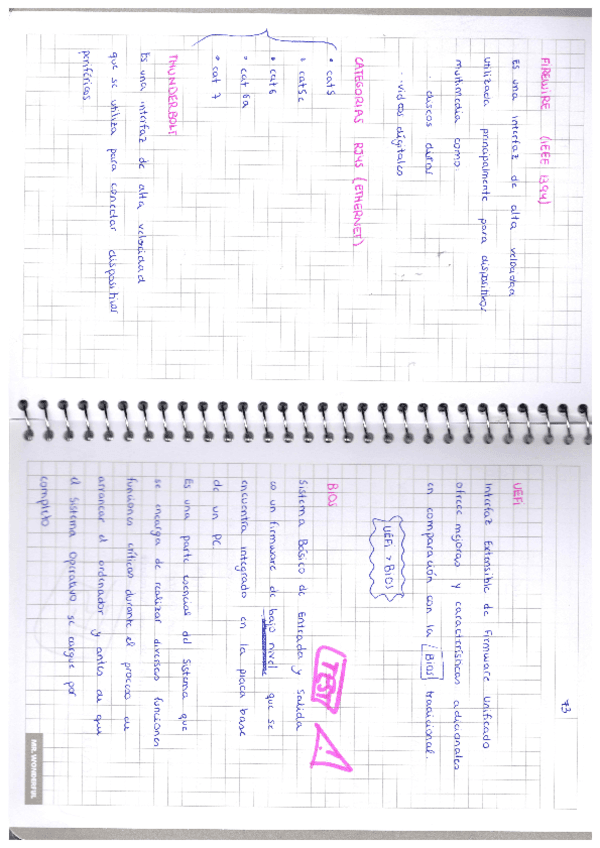 FIREWIRE (IEEE 1394)
Es una interfaz de alta velocidad
utilizada principalmente para dispositivos
multimedia como:
· discos duros
· videos digitales
CATEGORIAS RJ45 (ETHERNET)
• cat5
• cat5e
• cat6
• cat 6a
• cat 7
THUNDERBOLT
Es una interfaz de alta velocidad
que se utiliza para conectar dispositivos
periféricos
73
UEFI
Interfaz Extensible de Firmware Unificado
ofrece mejoras y características adicionales
en comparación con la Bios tradicional.
UEFI > BIOS
TEST !
BIOS
Sistema Básico de Entrada y Salida
es un firmware de bajo nivel que se
encuentra integrado en la placa base
de un PC
Es una parte esencial del sistema que
se encarga de realizar diversas funciones
funciones críticas durante el proceso de
arrancar el ordenador y antes de que
el Sistema Operativo se cargue por
completo
MR. WONDERFUL